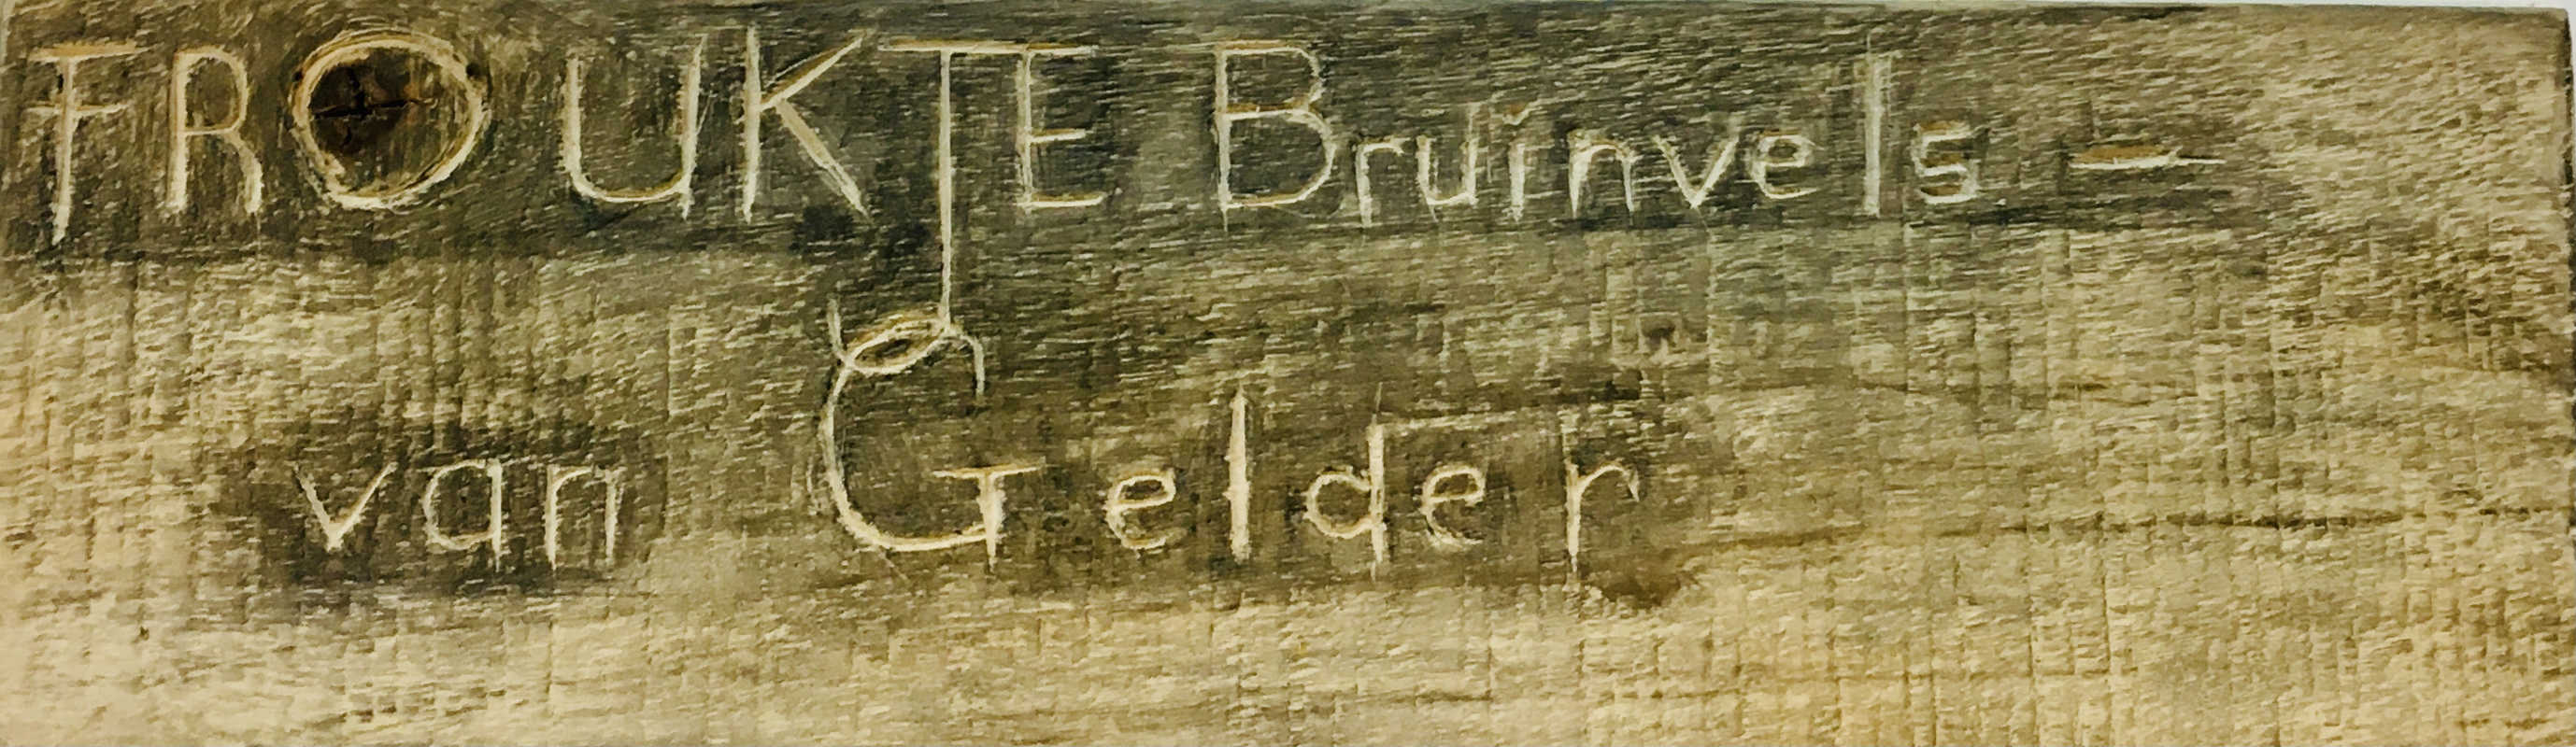 FROUKJE Bruinvels -
van Gelder